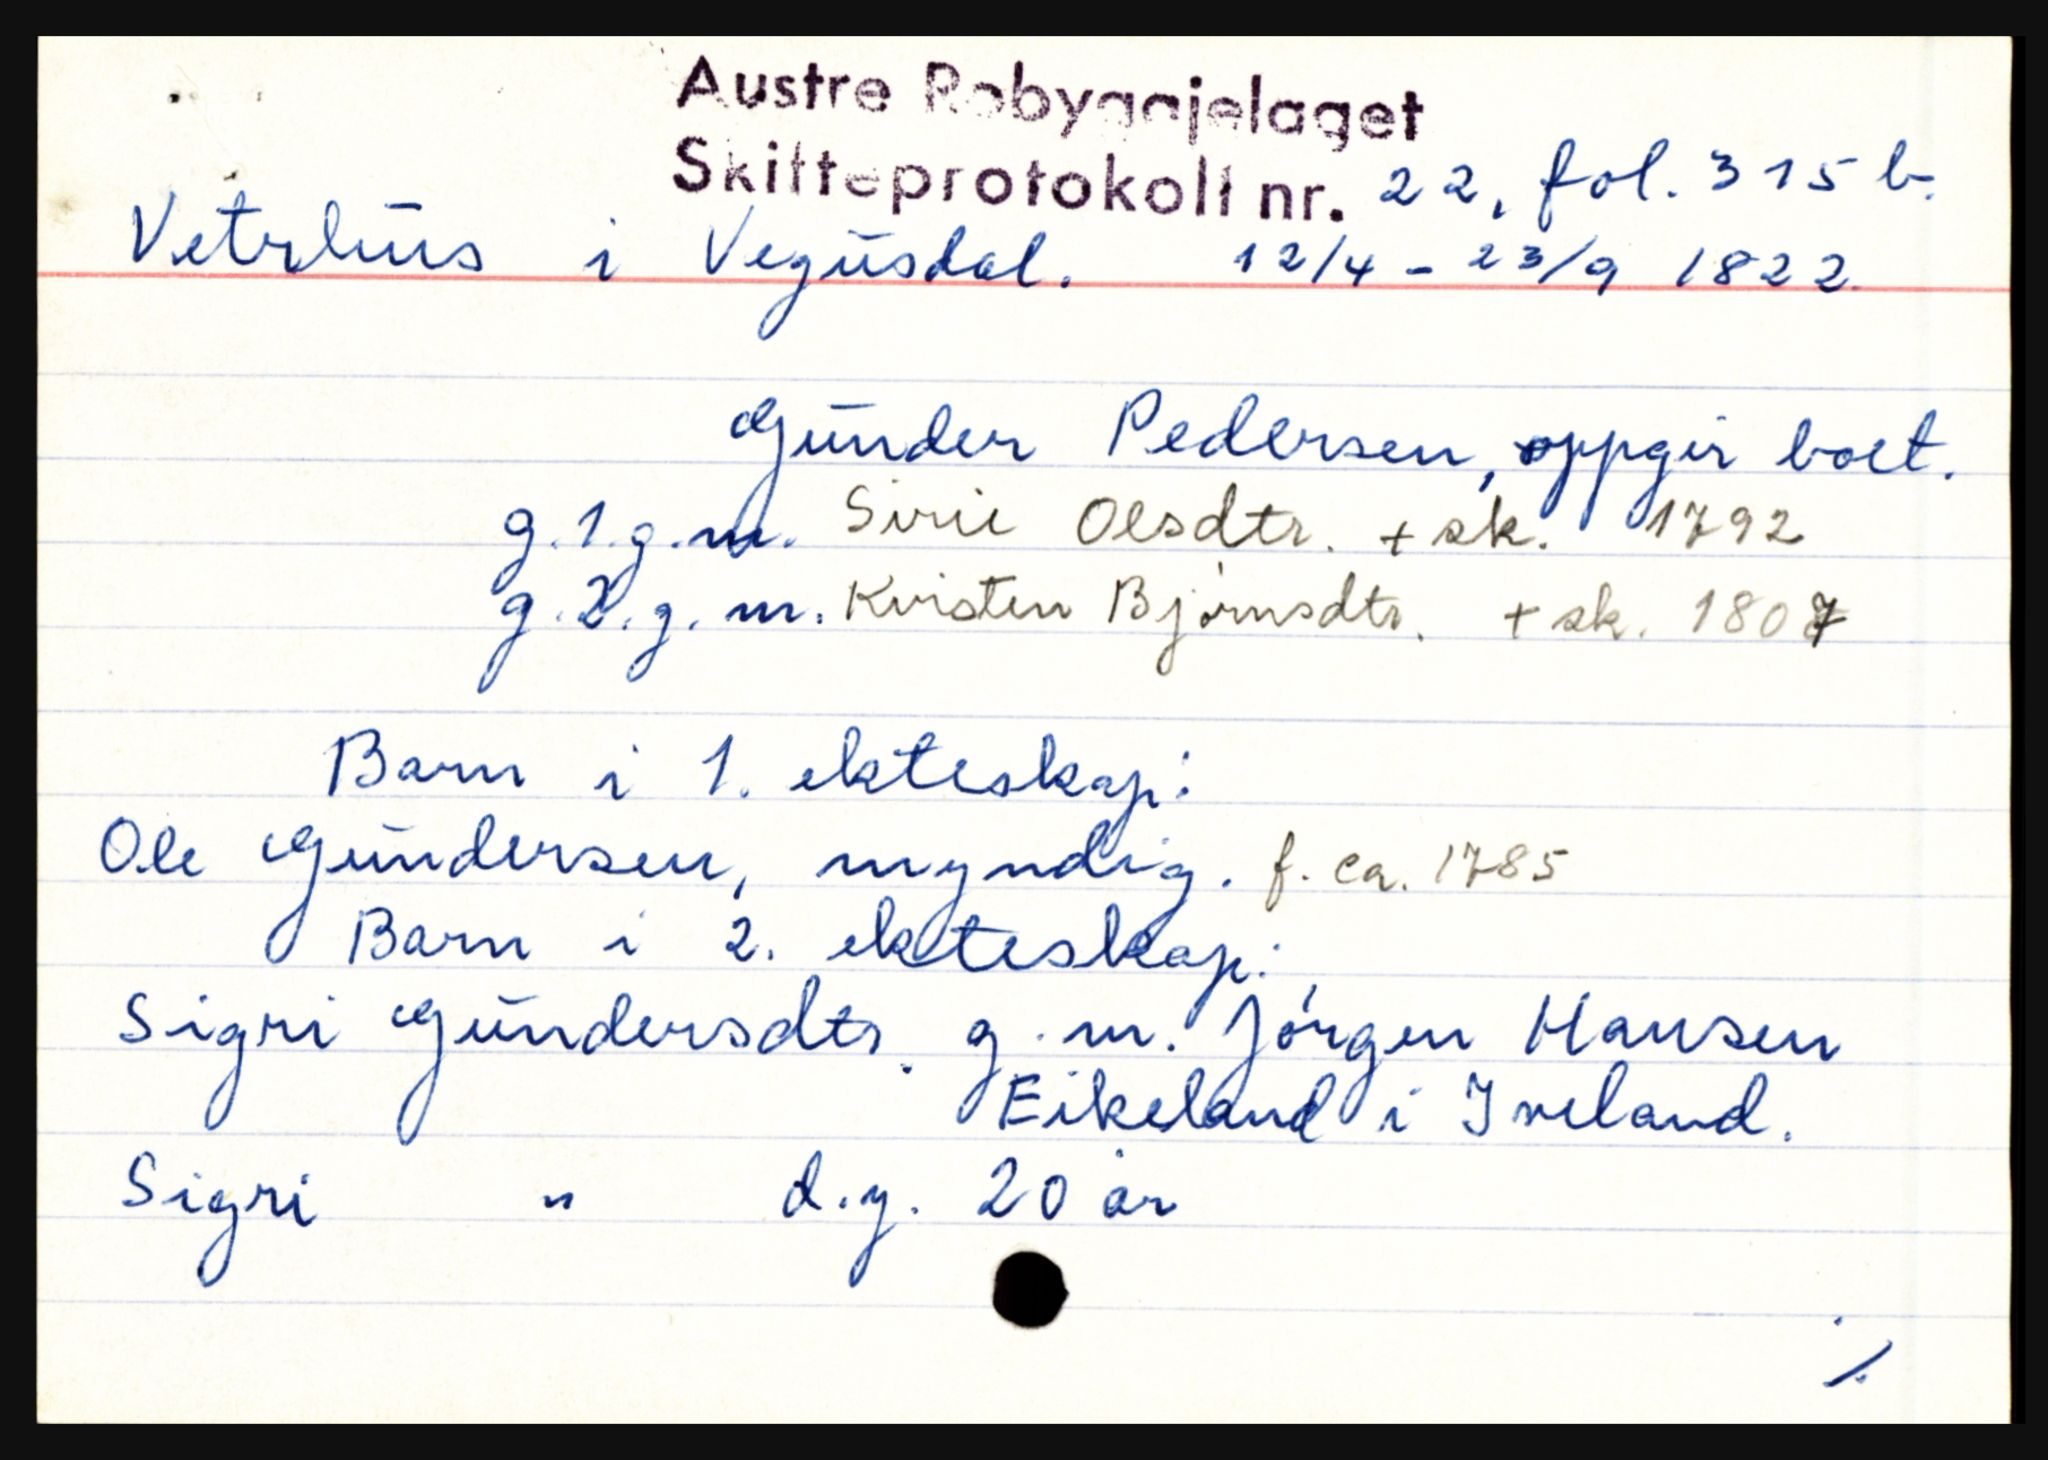 Austre Robyggjelaget
Skifteprotokoll nr. 22, fol. 315 b.
Vetrhus i Vegusdal. 12/4 - 23/9 1822.
Gunder Pedersen, oppgir boet.
g. 1. g. m. Sirie Olsdtr. + sk. 1792
g. 2. g. m. Kristen Bjørnsdtr. + sk. 1807
Barn i 1. ekteskap:
Ole Gundersen, myndig. f. ca. 1785
Barn i 2. ekteskap:
Sigri Gundersdtr. g. m. Jørgen Hansen
Eikeland i Iveland.
Sigri " d.y. 20 år
./.